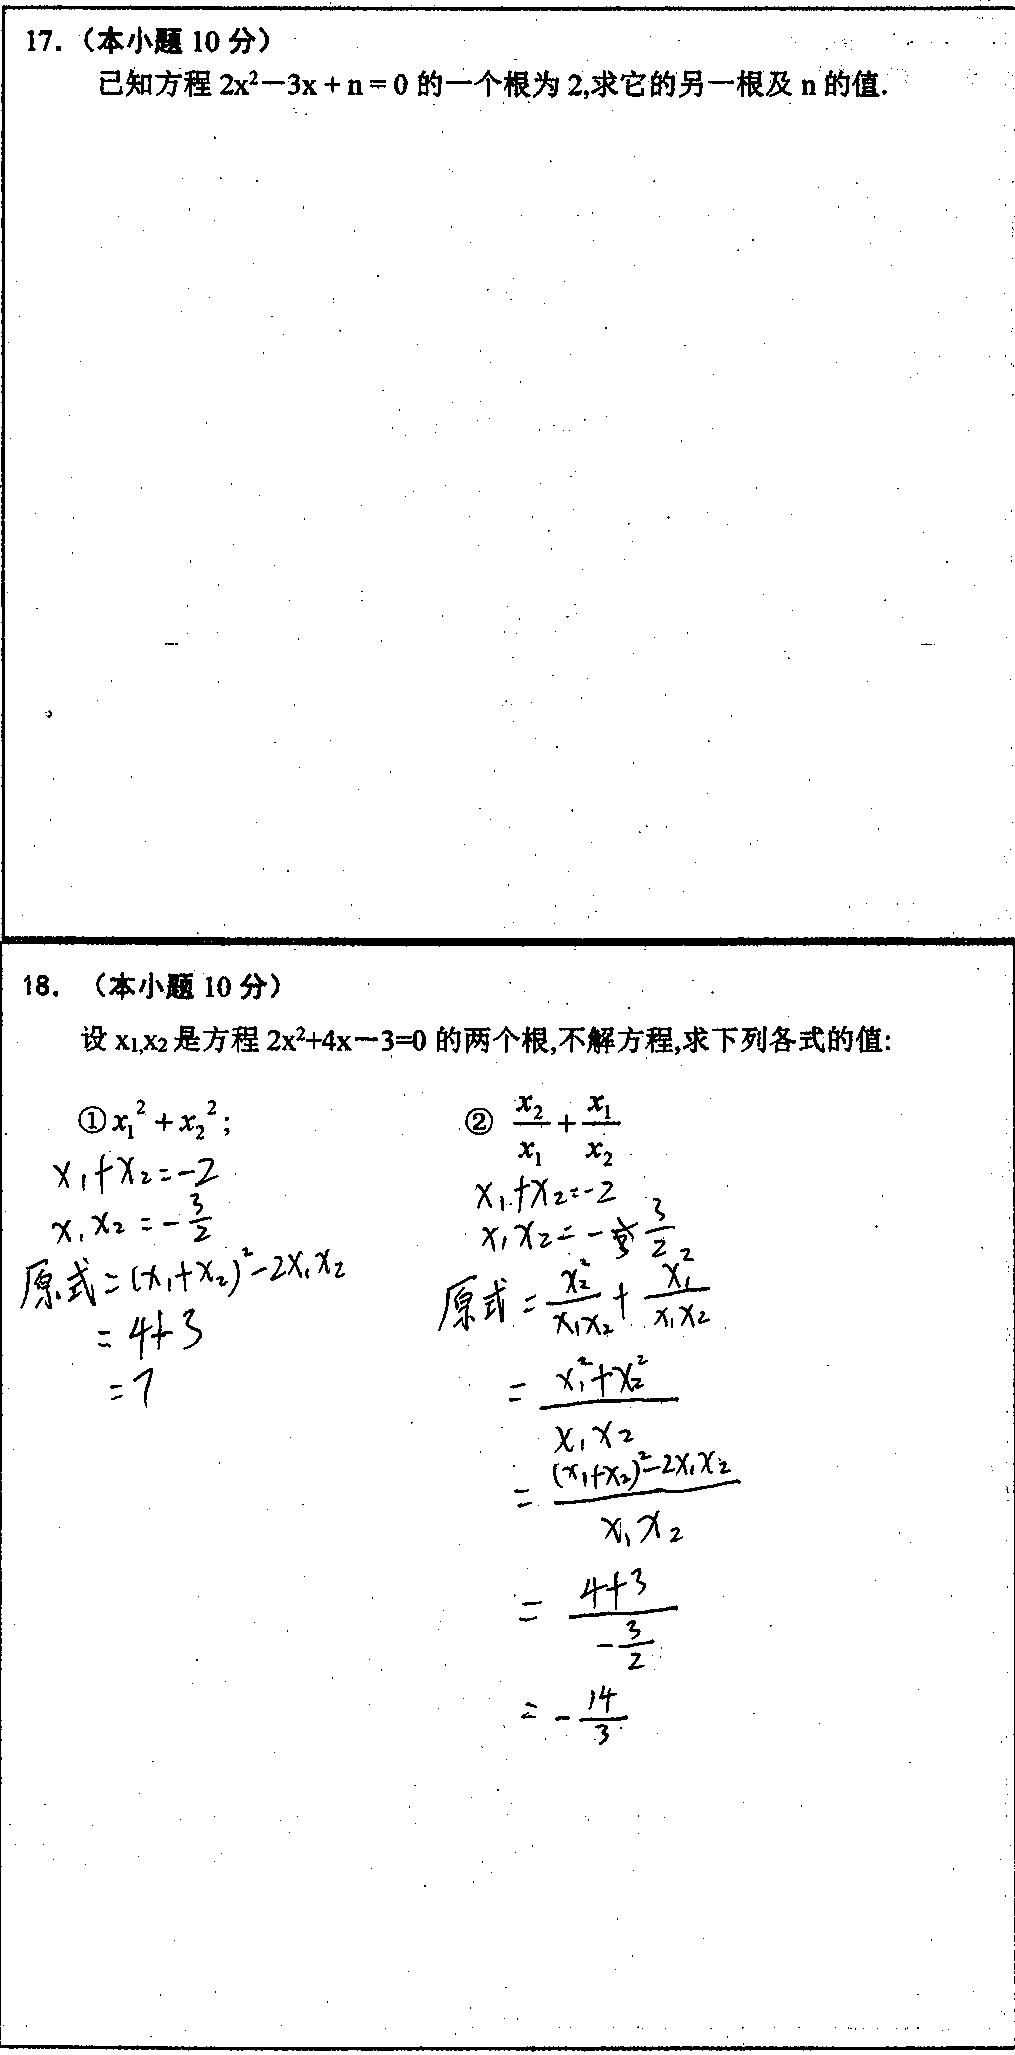 17.（本小题 10 分）
已知方程 2x²－3x + n = 0 的一个根为 2,求它的另一根及 n 的值.
18. （本小题 10 分）
设 x₁,x₂ 是方程 2x²+4x－3=0 的两个根,不解方程,求下列各式的值:
① x₁² + x₂² ;
x₁+x₂=-2
x₁x₂ = -3/2
原式=(x₁+x₂)²-2x₁x₂
= 4+3
=7
② x₂/x₁ + x₁/x₂
x₁+x₂=-2
x₁x₂=-3/2
原式 = x₂²/x₁x₂ + x₁²/x₁x₂
= (x₁²+x₂²)/x₁x₂
= ((x₁+x₂)²-2x₁x₂)/x₁x₂
= (4+3)/(-3/2)
= -14/3